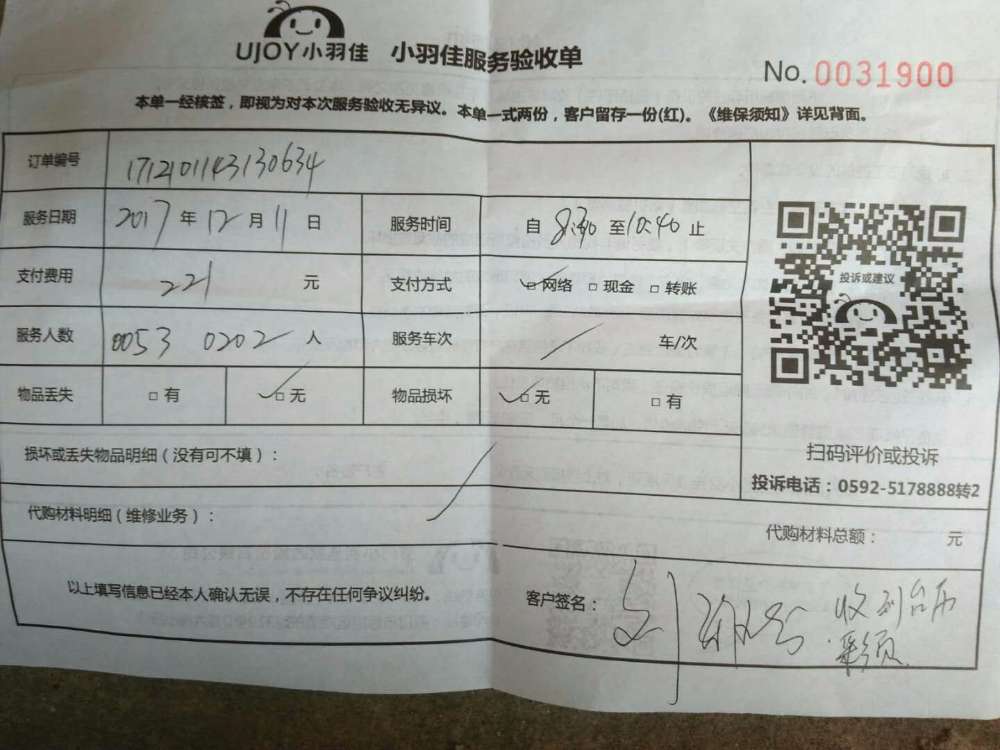 UJOY小羽佳 小羽佳服务验收单
No. 0031900
本单一经核签，即视为对本次服务验收无异议。本单一式两份，客户留存一份(红)。《维保须知》详见背面。
订单编号 171210143130634
服务日期 2017 年 12 月 11 日 服务时间 自 8:40 至 10:40 止
支付费用 221 元 支付方式 ✓□ 网络 □ 现金 □ 转账
服务人数 0053 0202 人 服务车次 / 车/次
物品丢失 □ 有 ✓□ 无 物品损坏 ✓□ 无 □ 有
投诉或建议
扫码评价或投诉
投诉电话：0592-5178888转2
损坏或丢失物品明细（没有可不填）：
代购材料明细（维修业务）：
代购材料总额： 元
以上填写信息已经本人确认无误，不存在任何争议纠纷。
客户签名： 刘
收到台历